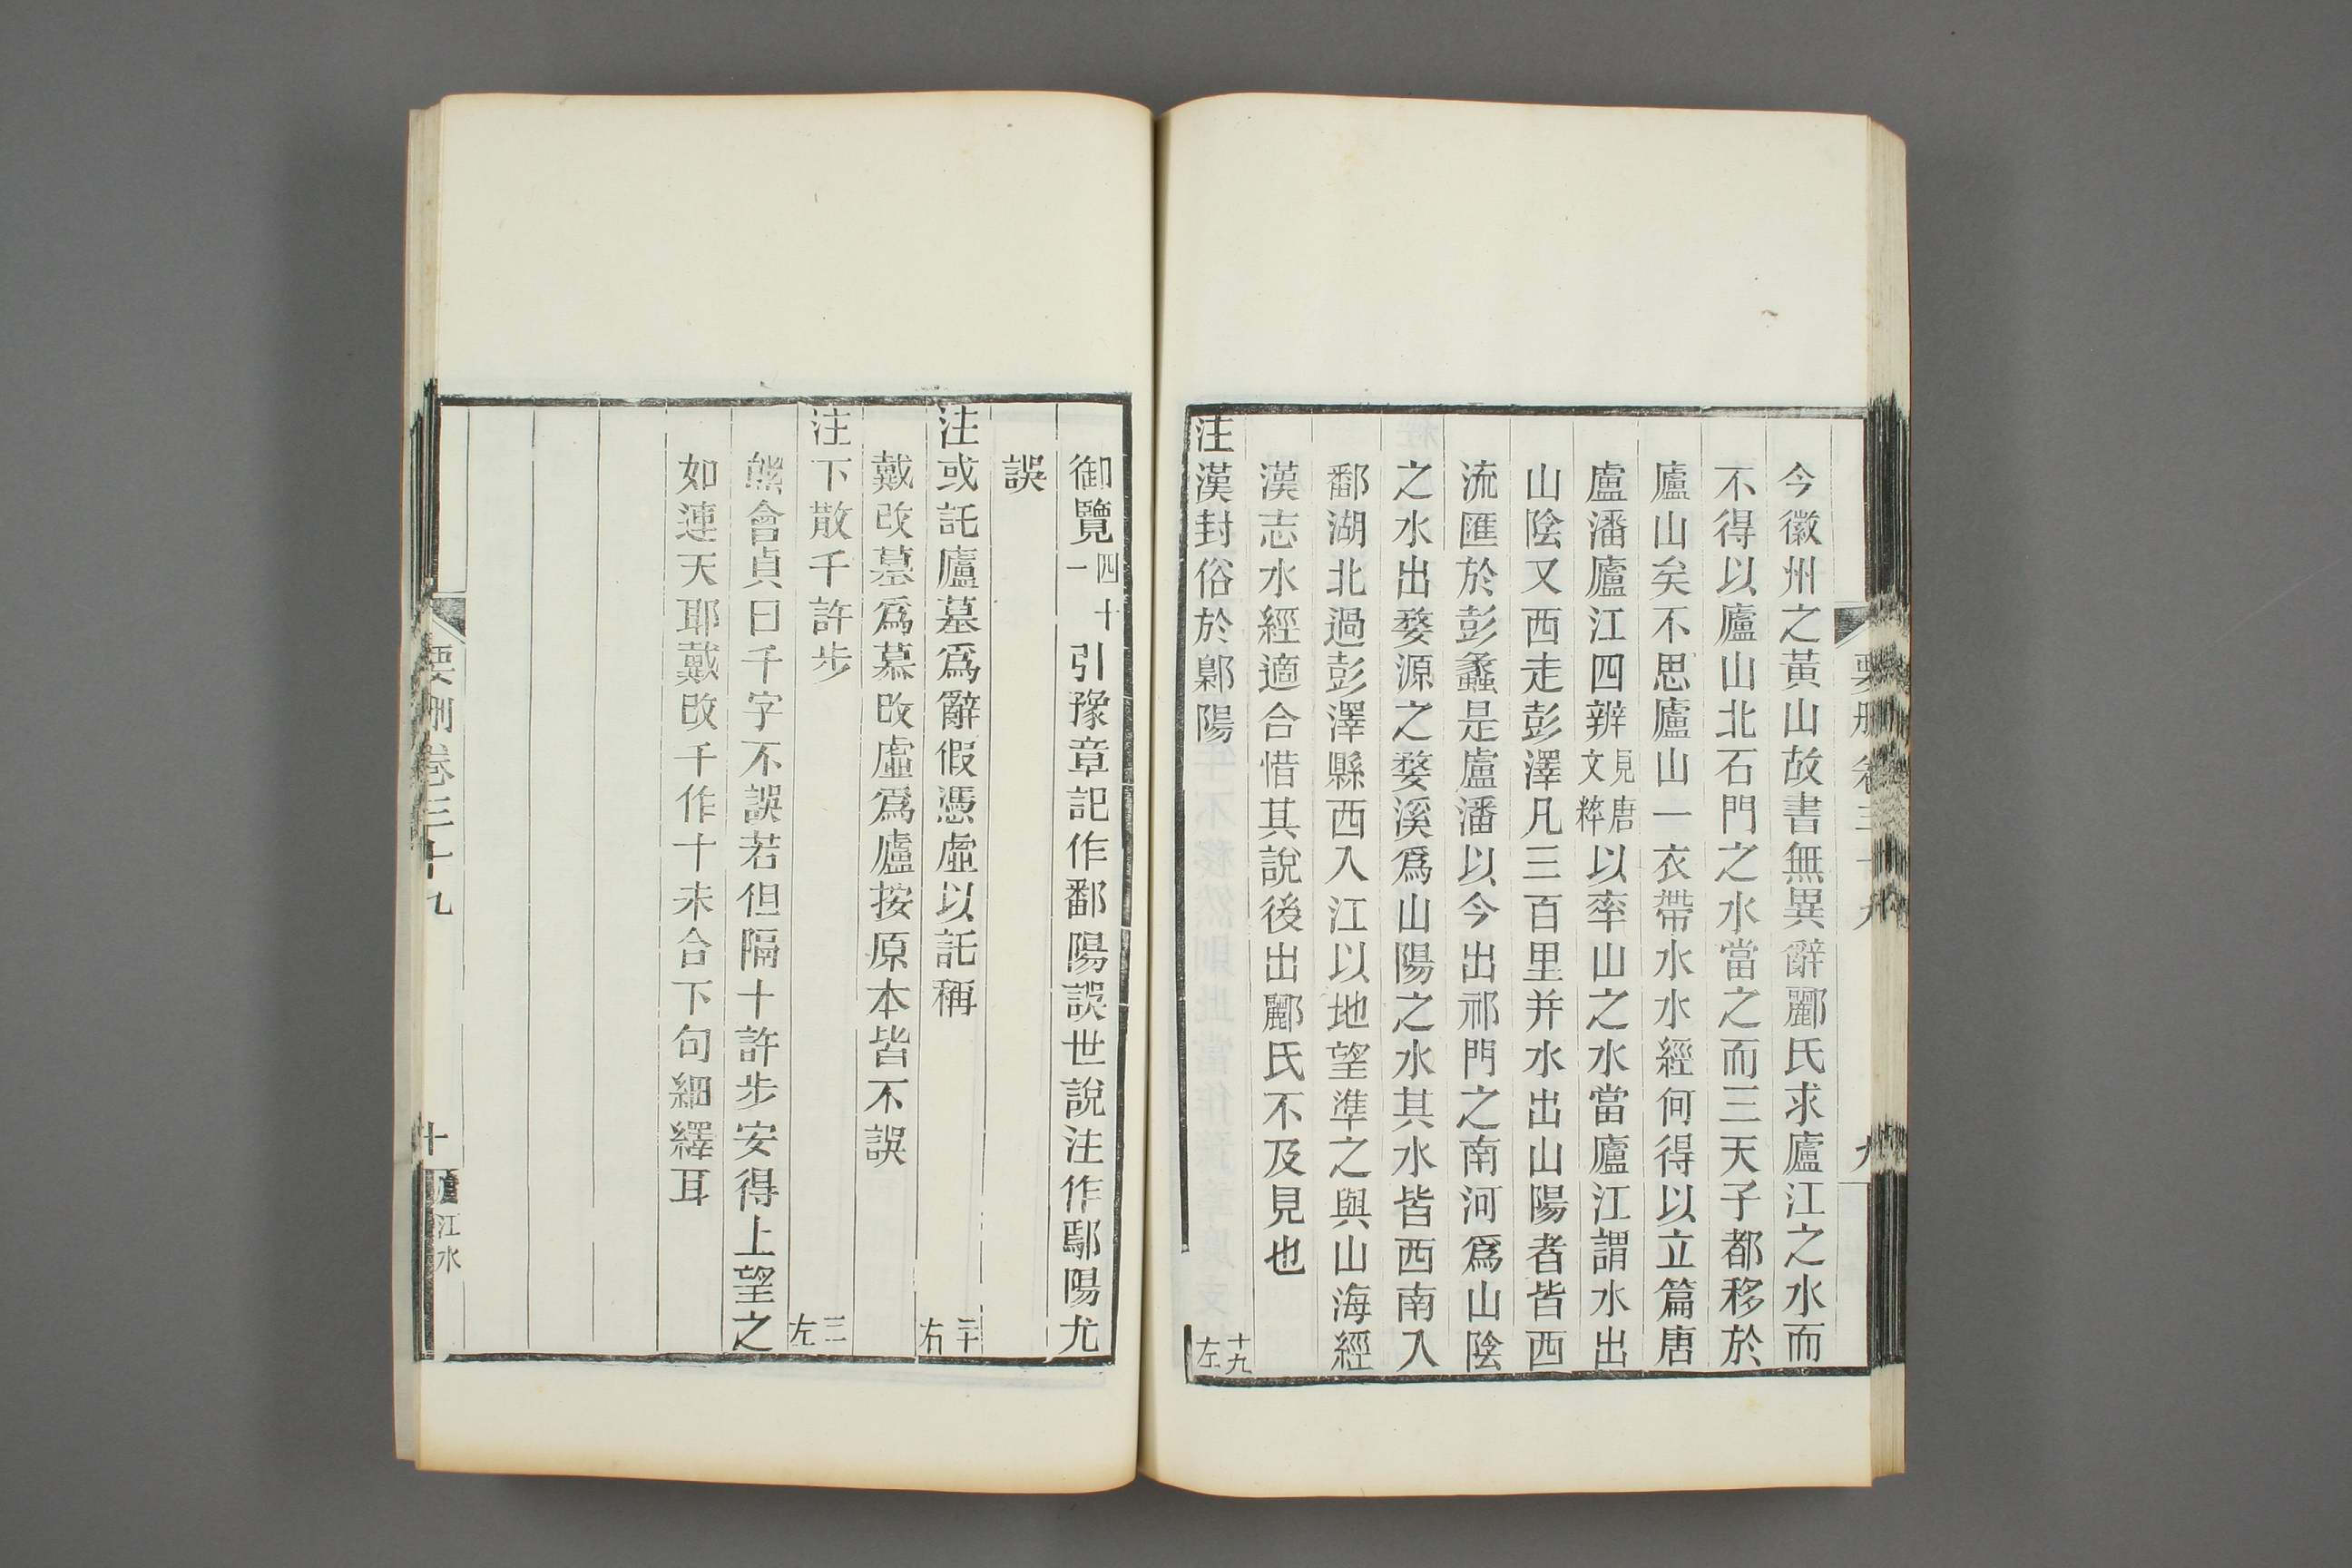 今徽州之黃山故書無異辭酈氏求廬江之水而
不得以廬山北石門之水當之而三天子都移於
廬山矣不思廬山一衣帶水水經何得以立篇唐
盧潘廬江四辨見唐文粹以率山之水當廬江謂水出
山陰又西走彭澤凡三百里并水出山陽者皆西
流匯於彭蠡是盧潘以今出祁門之南河爲山陰
之水出婺源之婺溪爲山陽之水其水皆西南入
鄱湖北過彭澤縣西入江以地望準之與山海經
漢志水經適合惜其說後出酈氏不及見也
注漢封俗於鄡陽 十九左
御覽四十一引豫章記作鄱陽誤世說注作鄢陽尤
誤
注或託廬墓爲辭假憑虛以託稱 二十右
戴改墓爲慕改虛爲廬按原本皆不誤
注下散千許步 二三左
熊會貞曰千字不誤若但隔十許步安得上望之
如連天耶戴改千作十未合下句細繹耳
要刪卷三十九 十 廬江水